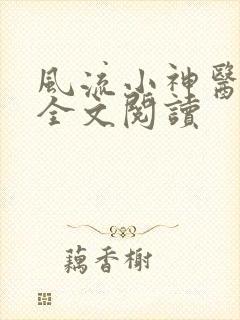 風流小神醫
全文閱讀
藕香榭